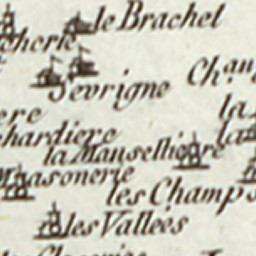 le Brachel
cherie
Sevrigne
Chau
ere
la
chardiere
la
la Manselliere
asonerie
les Champs
les Vallées